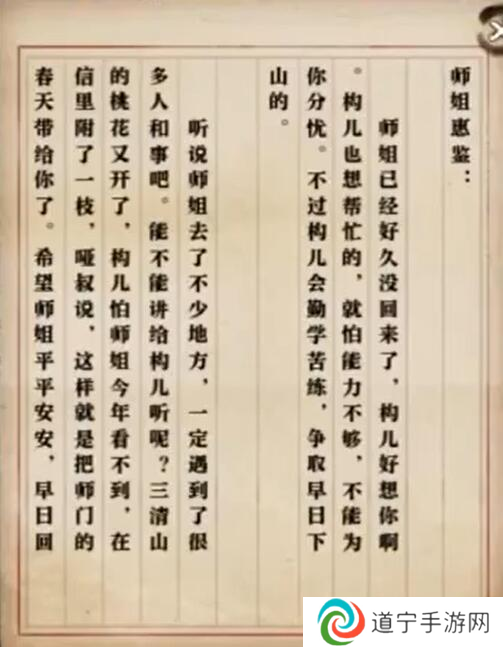 师姐惠鉴：
师姐已经好久没回来了，构儿好想你啊
。构儿也想帮忙的，就怕能力不够，不能为
你分忧。不过构儿会勤学苦练，争取早日下
山的。
听说师姐去了不少地方，一定遇到了很
多人和事吧。能不能讲给构儿听呢？三清山
的桃花又开了，构儿怕师姐今年看不到，在
信里附了一枝，哑叔说，这样就是把师门的
春天带给你了。希望师姐平平安安，早日回
道宁手游网